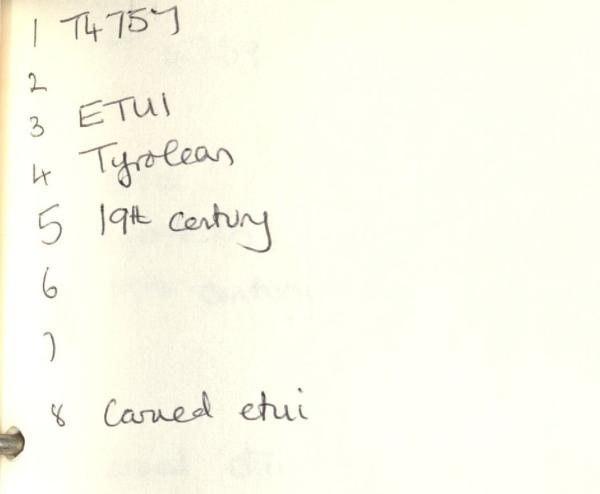 1 T4759
2
3 ETUI
4 Tyrolean
5 19th century
6
7
8 Carved etui